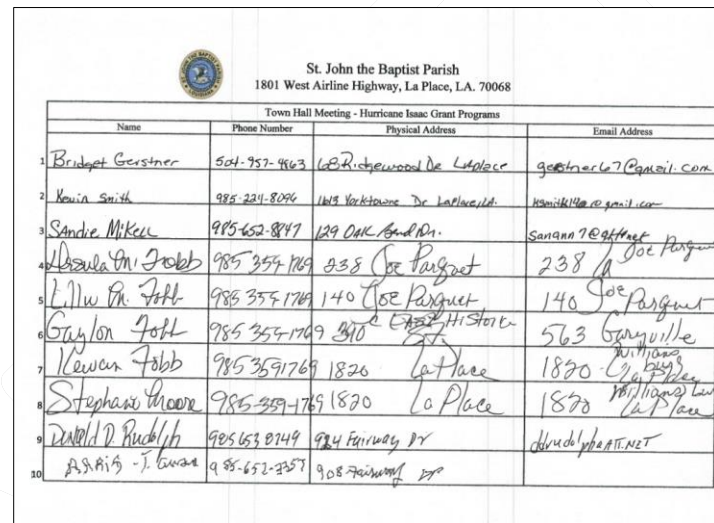 St. John the Baptist Parish
1801 West Airline Highway, La Place, LA. 70068
Town Hall Meeting - Hurricane Isaac Grant Programs
Name Phone Number Physical Address Email Address
1 Bridget Gerstner 504-957-9863 68 Ridgewood Dr Laplace gerstner67@gmail.com
2 Kevin Smith 985-224-8096 1613 Yorktowne Dr LaPlace, LA.
3 Sandie Mikell 985-652-8847 129 Oak Bend Dr.
4 Ursula M. Fobb 985 359 1769 238 Joe Parquet 238 Joe Parquet
5 M. Fobb 985 359 1769 140 Joe Parquet 140 Joe Parquet
6 Gaylon Fobb 985 359-1769 390 East Historic St. 563 Garyville
7 Kewan Fobb 985 3591769 1820 La Place 1820 Williams La Place
8 Stephanie Moore 985-359-1769 1820 La Place 1820 Williams La Place
9 Donald D. Rudolph 985 653 8749 924 Fairway Dr ddrudolph@ATT.NET
10 985-652-3357 908 Fairway Dr